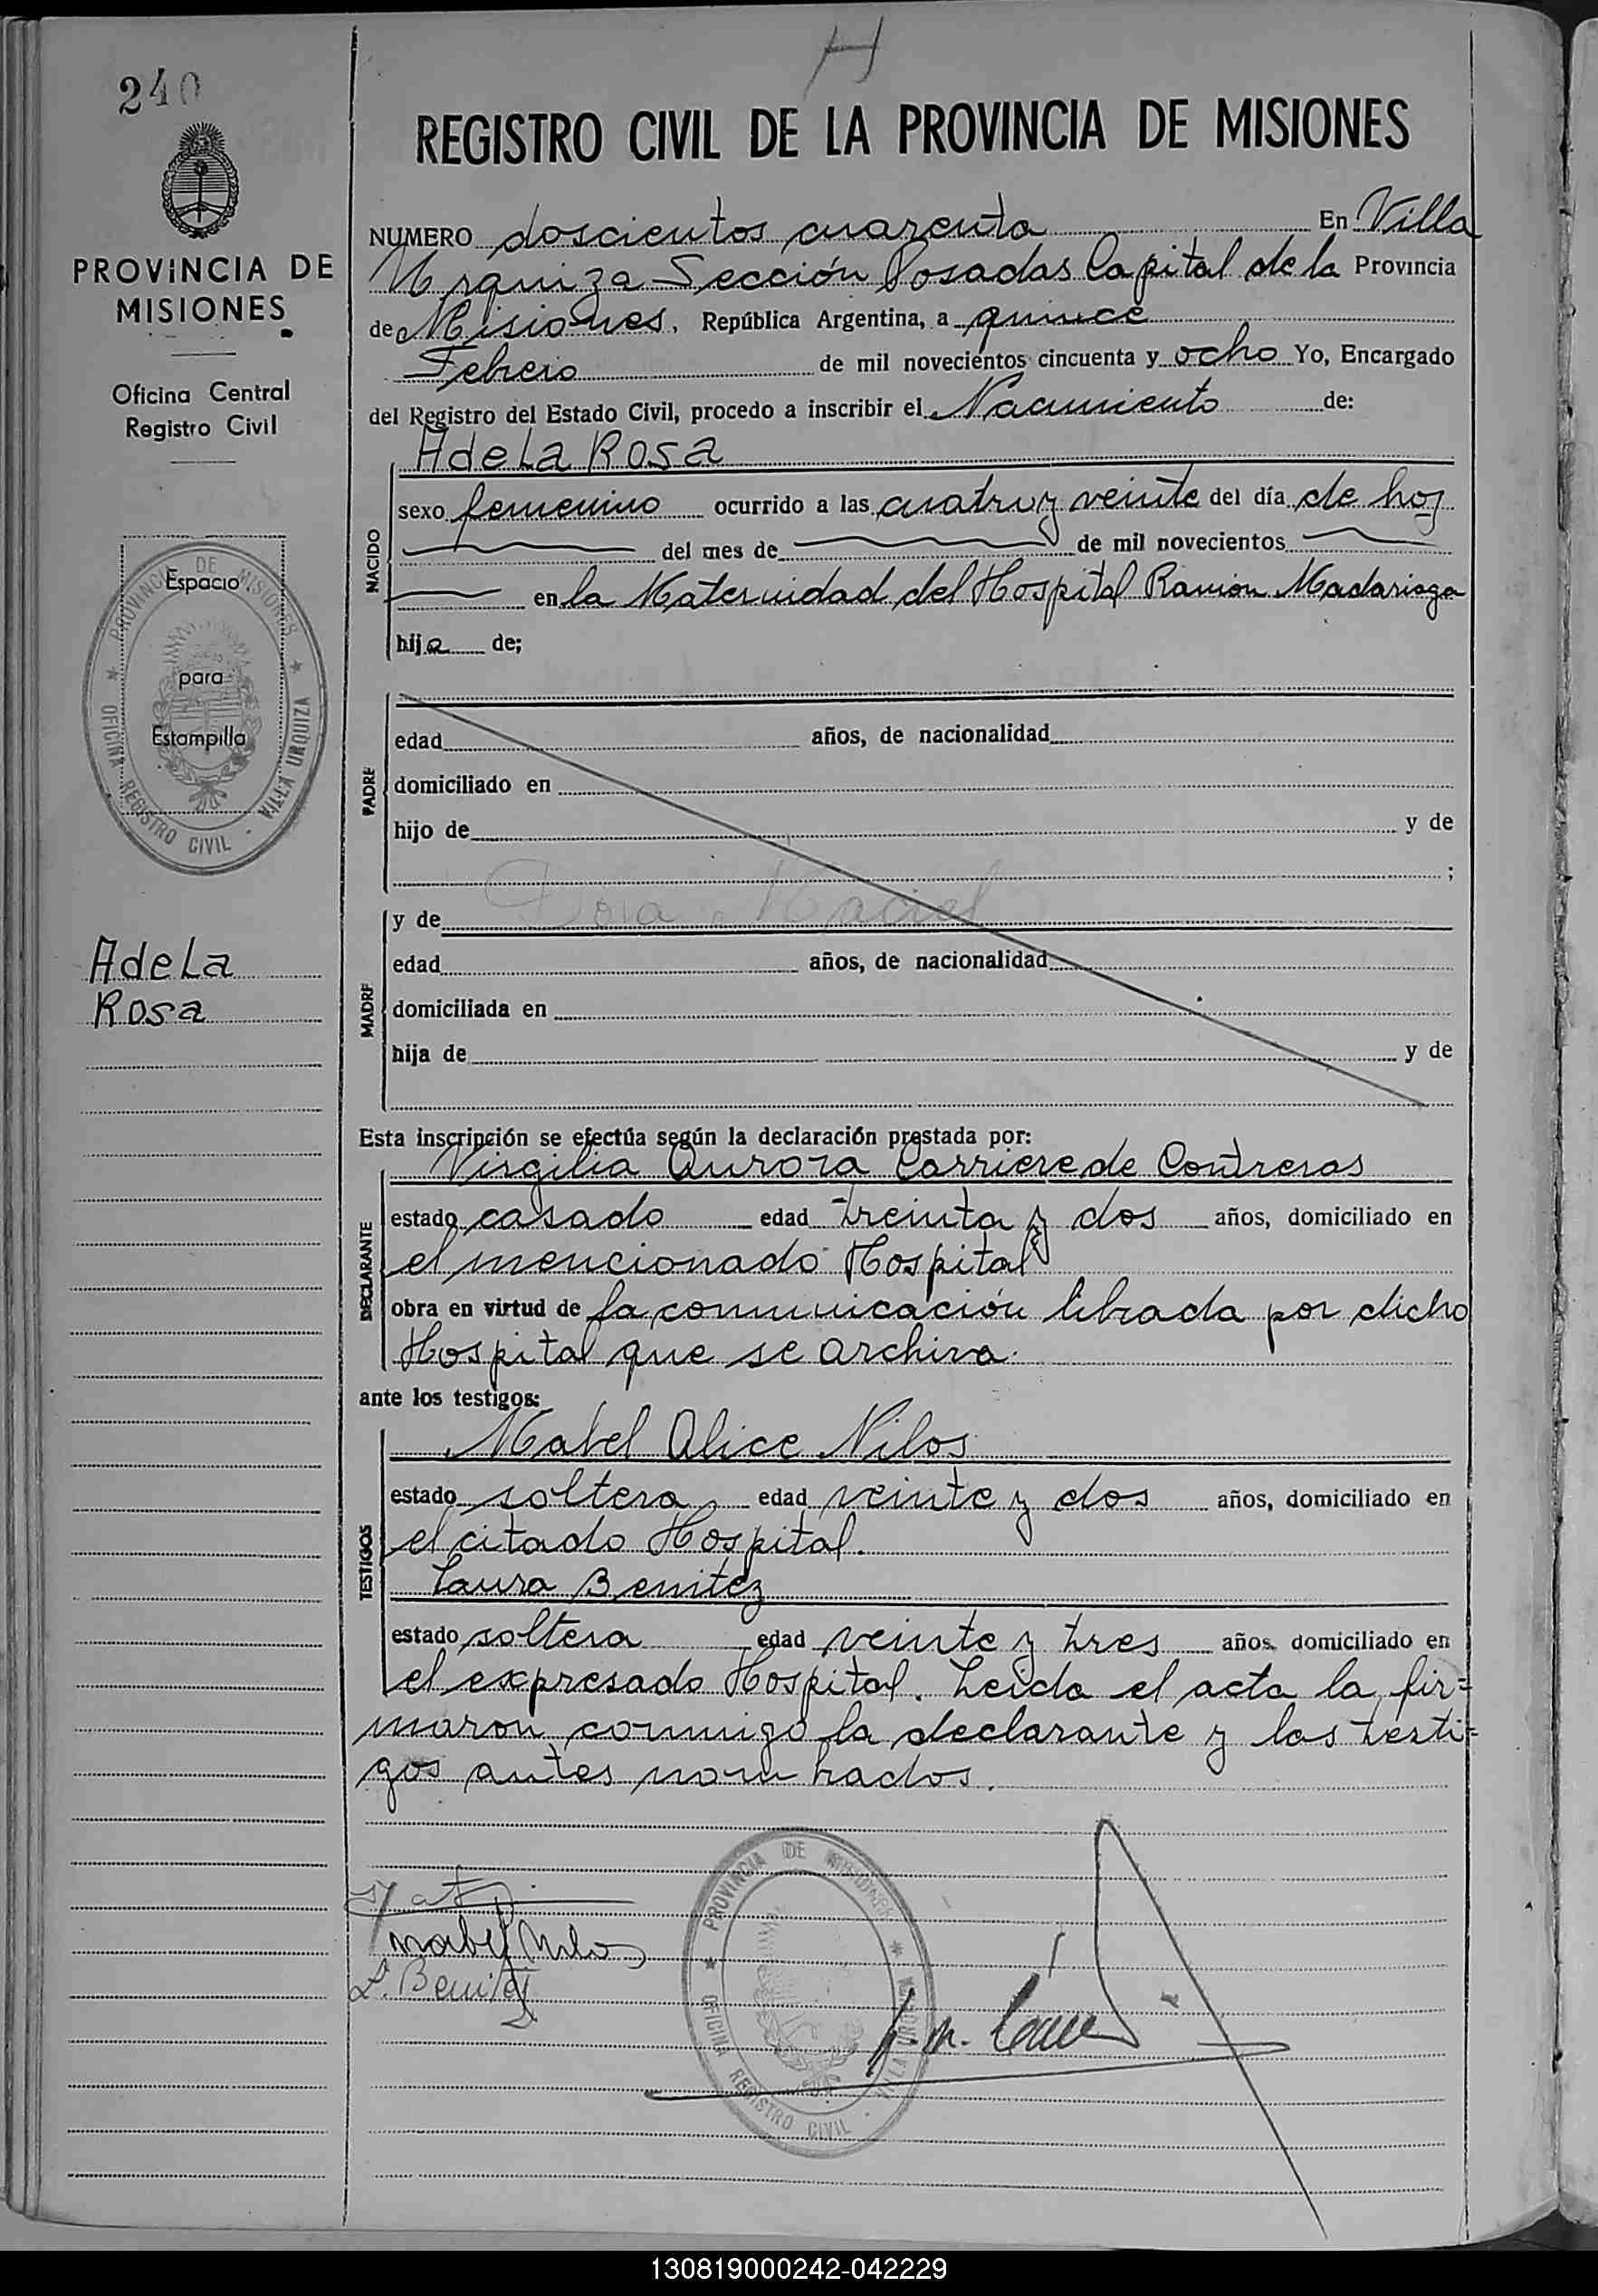 H
240
REGISTRO CIVIL DE LA PROVINCIA DE MISIONES
PROVINCIA DE
MISIONES
Oficina Central
Registro Civil
Espacio
para
Estampilla
PROVINCIA DE MISIONES
OFICINA REGISTRO CIVIL - VILLA URQUIZA
Adela
Rosa
NUMERO doscientos cuarenta En Villa
Urquiza Sección Posadas Capital de la Provincia
de Misiones, República Argentina, a quince
Febrero de mil novecientos cincuenta y ocho Yo, Encargado
del Registro del Estado Civil, procedo a inscribir el Nacimiento de:
Adela Rosa
NACIDO
sexo femenino ocurrido a las cuatro y veinte del día de hoy
del mes de de mil novecientos
en la Maternidad del Hospital Ramón Madariaga
hija de;
PADRE
edad años, de nacionalidad
domiciliado en
hijo de y de
;
Dora Maciel
y de
MADRE
edad años, de nacionalidad
domiciliada en
hija de y de
Esta inscripción se efectúa según la declaración prestada por:
Virgilia Aurora Carriere de Contreras
DECLARANTE
estado casado edad treinta y dos años, domiciliado en
el mencionado Hospital
obra en virtud de la comunicación librada por dicho
Hospital que se archiva.
ante los testigos:
Mabel Alice Nilos
TESTIGOS
estado soltera, edad veinte y dos años, domiciliado en
el citado Hospital.
Laura Benitez
estado soltera edad veinte y tres años, domiciliado en
el expresado Hospital. Leida el acta la fir=
maron conmigo la declarante y los testi=
gos antes nombrados.
Mabel Nilos
L. Benitez
PROVINCIA DE MISIONES
OFICINA REGISTRO CIVIL - VILLA URQUIZA
130819000242-042229